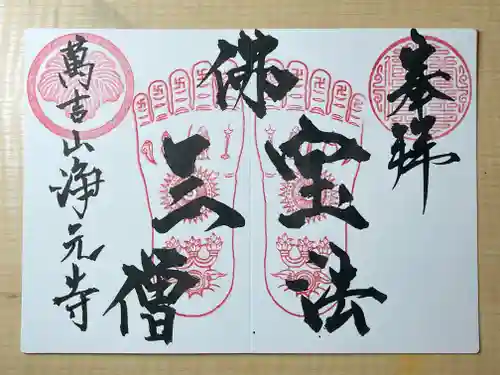 奉拝
佛
三宝
法
僧
萬吉山淨元寺